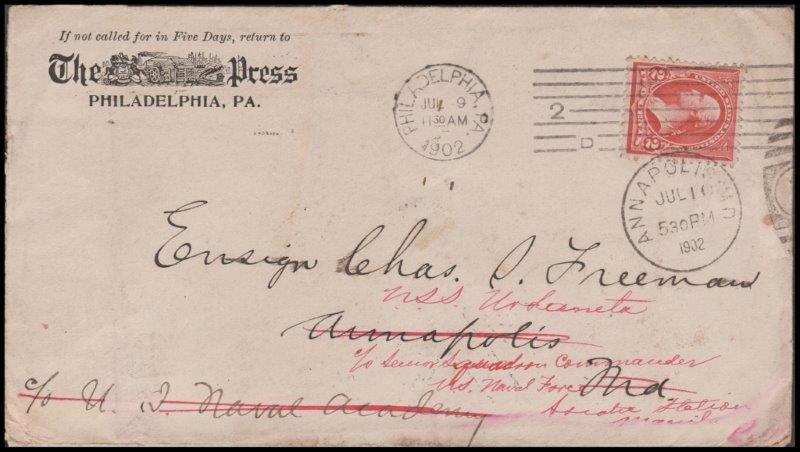 If not called for in Five Days, return to
The Press
PHILADELPHIA, PA.
PHILADELPHIA, PA.
JUL 9
11 30 AM
1902
2
D
ANNAPOLIS, MD
JUL 10
5 30 PM
1902
Ensign Chas. S. Freeman
USS. Urdaneta
Annapolis
c/o Senior Squadron Commander
Md.
U.S. Naval Force
c/o U. S. Naval Academy
Asiatic Station
Manila